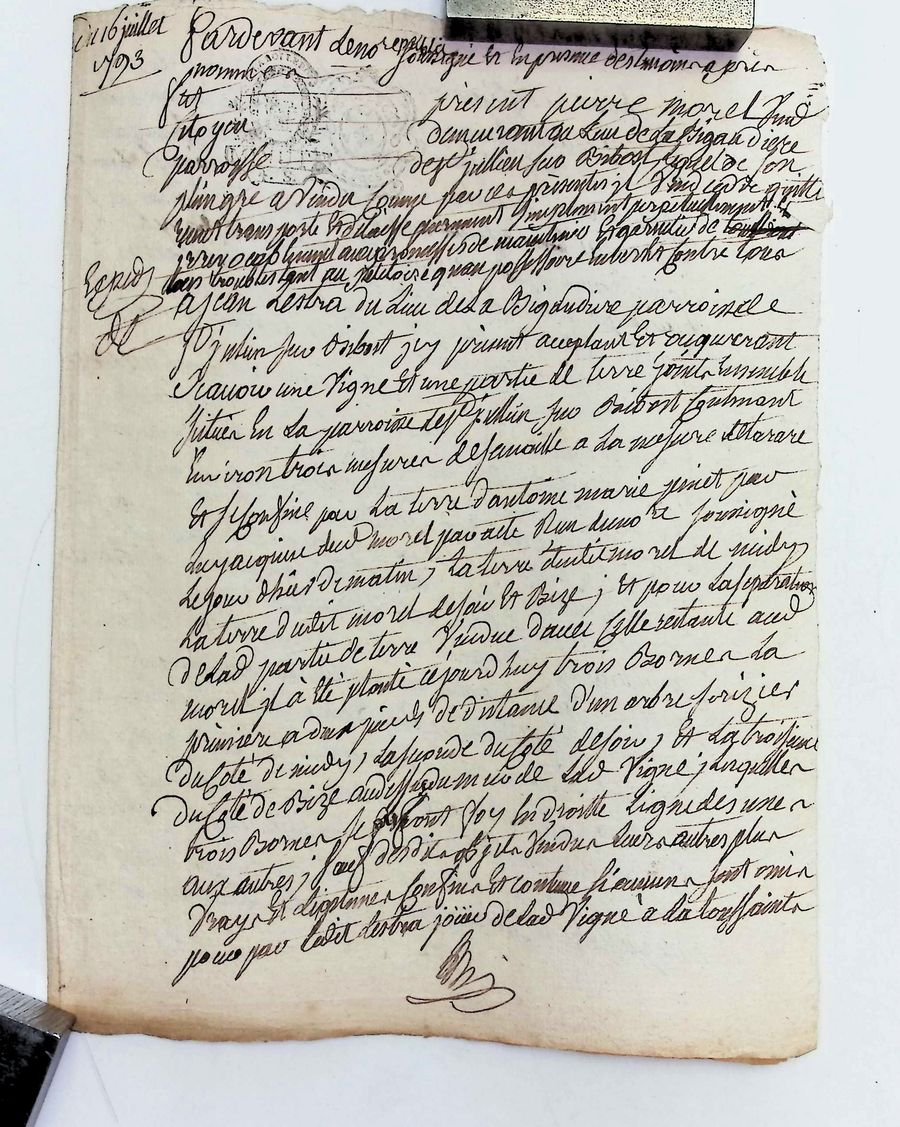 Du 16 juillet
1793
Pardevant le no.re public soussigné et en presence des temoins apres
nommés
fut present pierre morel
Citoyen demeurant au Lieu de La Bigaudiere
parroisse de st jullien sur Bibost Lequel de son
plein gré a vendu comme par ces presentes il vend cede quitte
remet transporte et delaisse purement simplement perpetuellement et
irrevocablement avec promesses de maintenir et garantir de
tous troubles tant au petitoire quau possessoire envers et Contre tous
Exped
a jean Lestra du Lieu de La Bigaudiere parroisse de
st julien sur Bibost icy présent acceptant et acquerant
Scavoir une Vigne et une partie de terre joints Ensemble
situés En La parroisse de st jullin sur Bibost Contenant
Environ trois mesures de semaille a La mesure de tarare
Et se Confine par La terre d'antoine marie pinet par
luy acquise dud morel par acte Reçu du no.re soussigné
Le jour d'hier de matin, La terre dudit morel de midy
La terre dudit morel de soir Et Bize; Et pour La separation
de Lad partie de terre Vendue d'avec Celle restante aud
morel il à été planté cejourd'huy trois Bornes La
premiere a deux pieds de distance d'un arbre serizier
du Coté de midy, La seconde du Coté de soir, Et La troisieme
du Coté de Bize au dessus du mur de Lad Vigne; Lesquelles
trois Bornes se font foy En droitte Ligne des unes
aux autres; sauf desdits objets Vendus Leurs autres plus
Vrays Et Legitimes Confins Et contenue si aucuns sont omis
pour par Ledit Lestra jouir de Lad Vigne à La toussaints